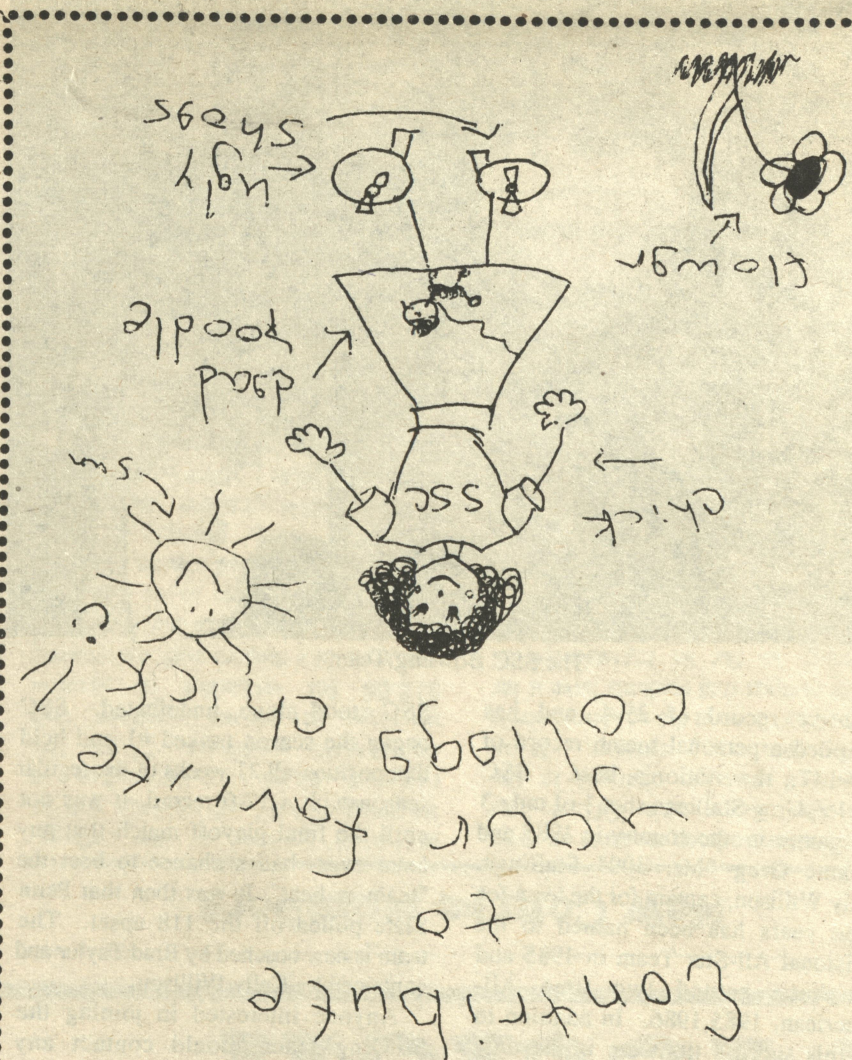 Contribute
to
your favrite
college chick!!?
sun
chick
SSC
dead
poodle
flower
ugly
shoes